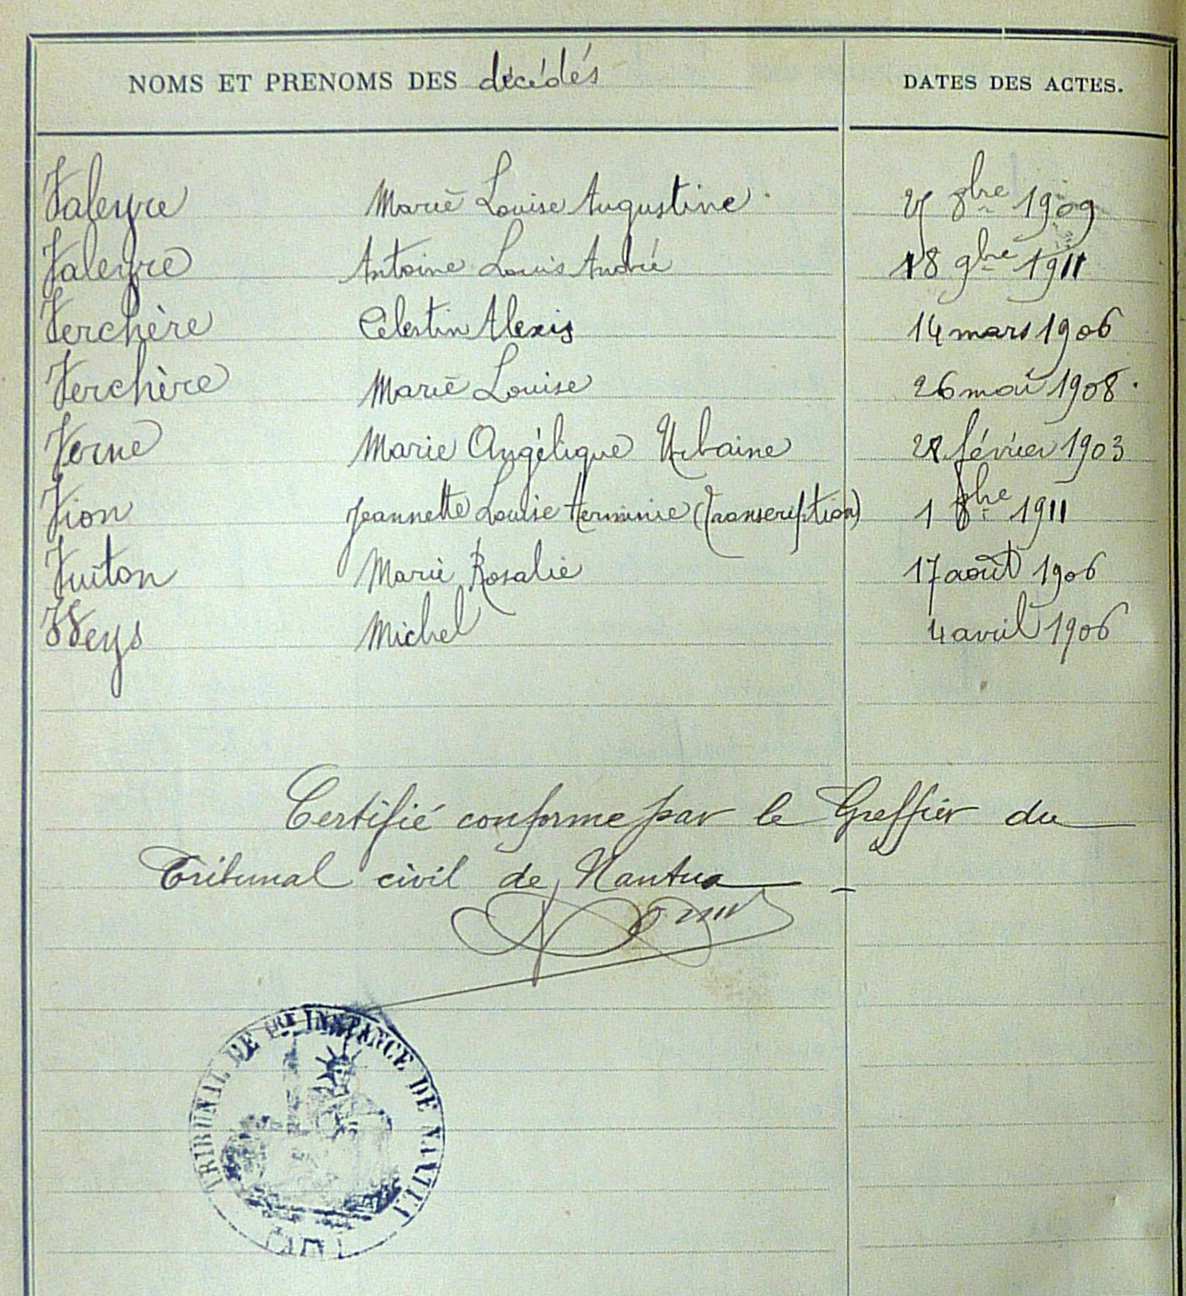 NOMS ET PRENOMS DES décédés DATES DES ACTES.
Valeyre Marie Louise Augustine 8bre 1909
Valeyre Antoine Louis André 18 9bre 1911
Verchère Célestin Alexis 14 mars 1906
Verchère Marie Louise 26 mai 1908
Verne Marie Angélique Urbaine février 1903
Vion Jeannette Louise Herminie (Transcription) 1 8bre 1911
Vuiton Marie Rosalie 17 août 1906
Weys Michel 4 avril 1906
Certifié conforme par le Greffier du
Tribunal civil de Nantua
TRIBUNAL DE 1RE INSTANCE DE NANTUA
(AIN)